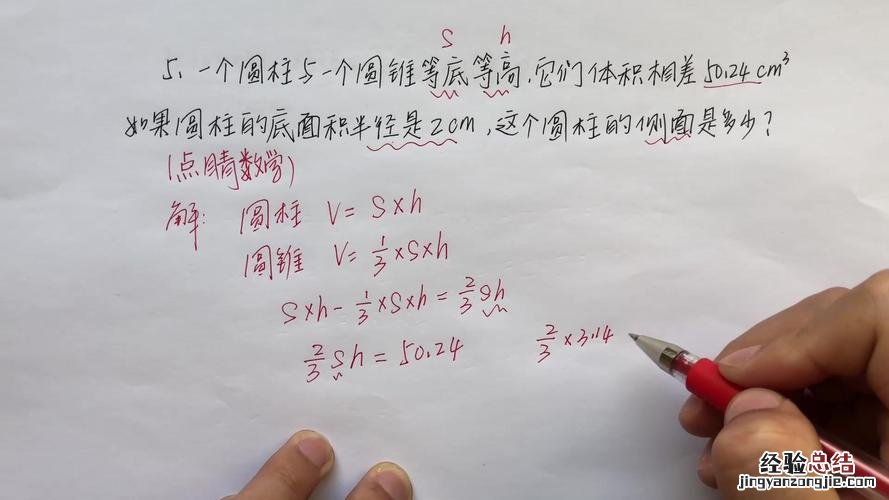 S h
5、一个圆柱与一个圆锥等底等高,它们体积相差50.24cm³
如果圆柱的底面积半径是2cm,这个圆柱的侧面是多少?
(点睛数学)
解: 圆柱 V=S×h
圆锥 V=1/3×S×h
S×h-1/3×S×h=2/3Sh
2/3Sh=50.24 2/3×3.14
经验总结
jingyanzongjie.com